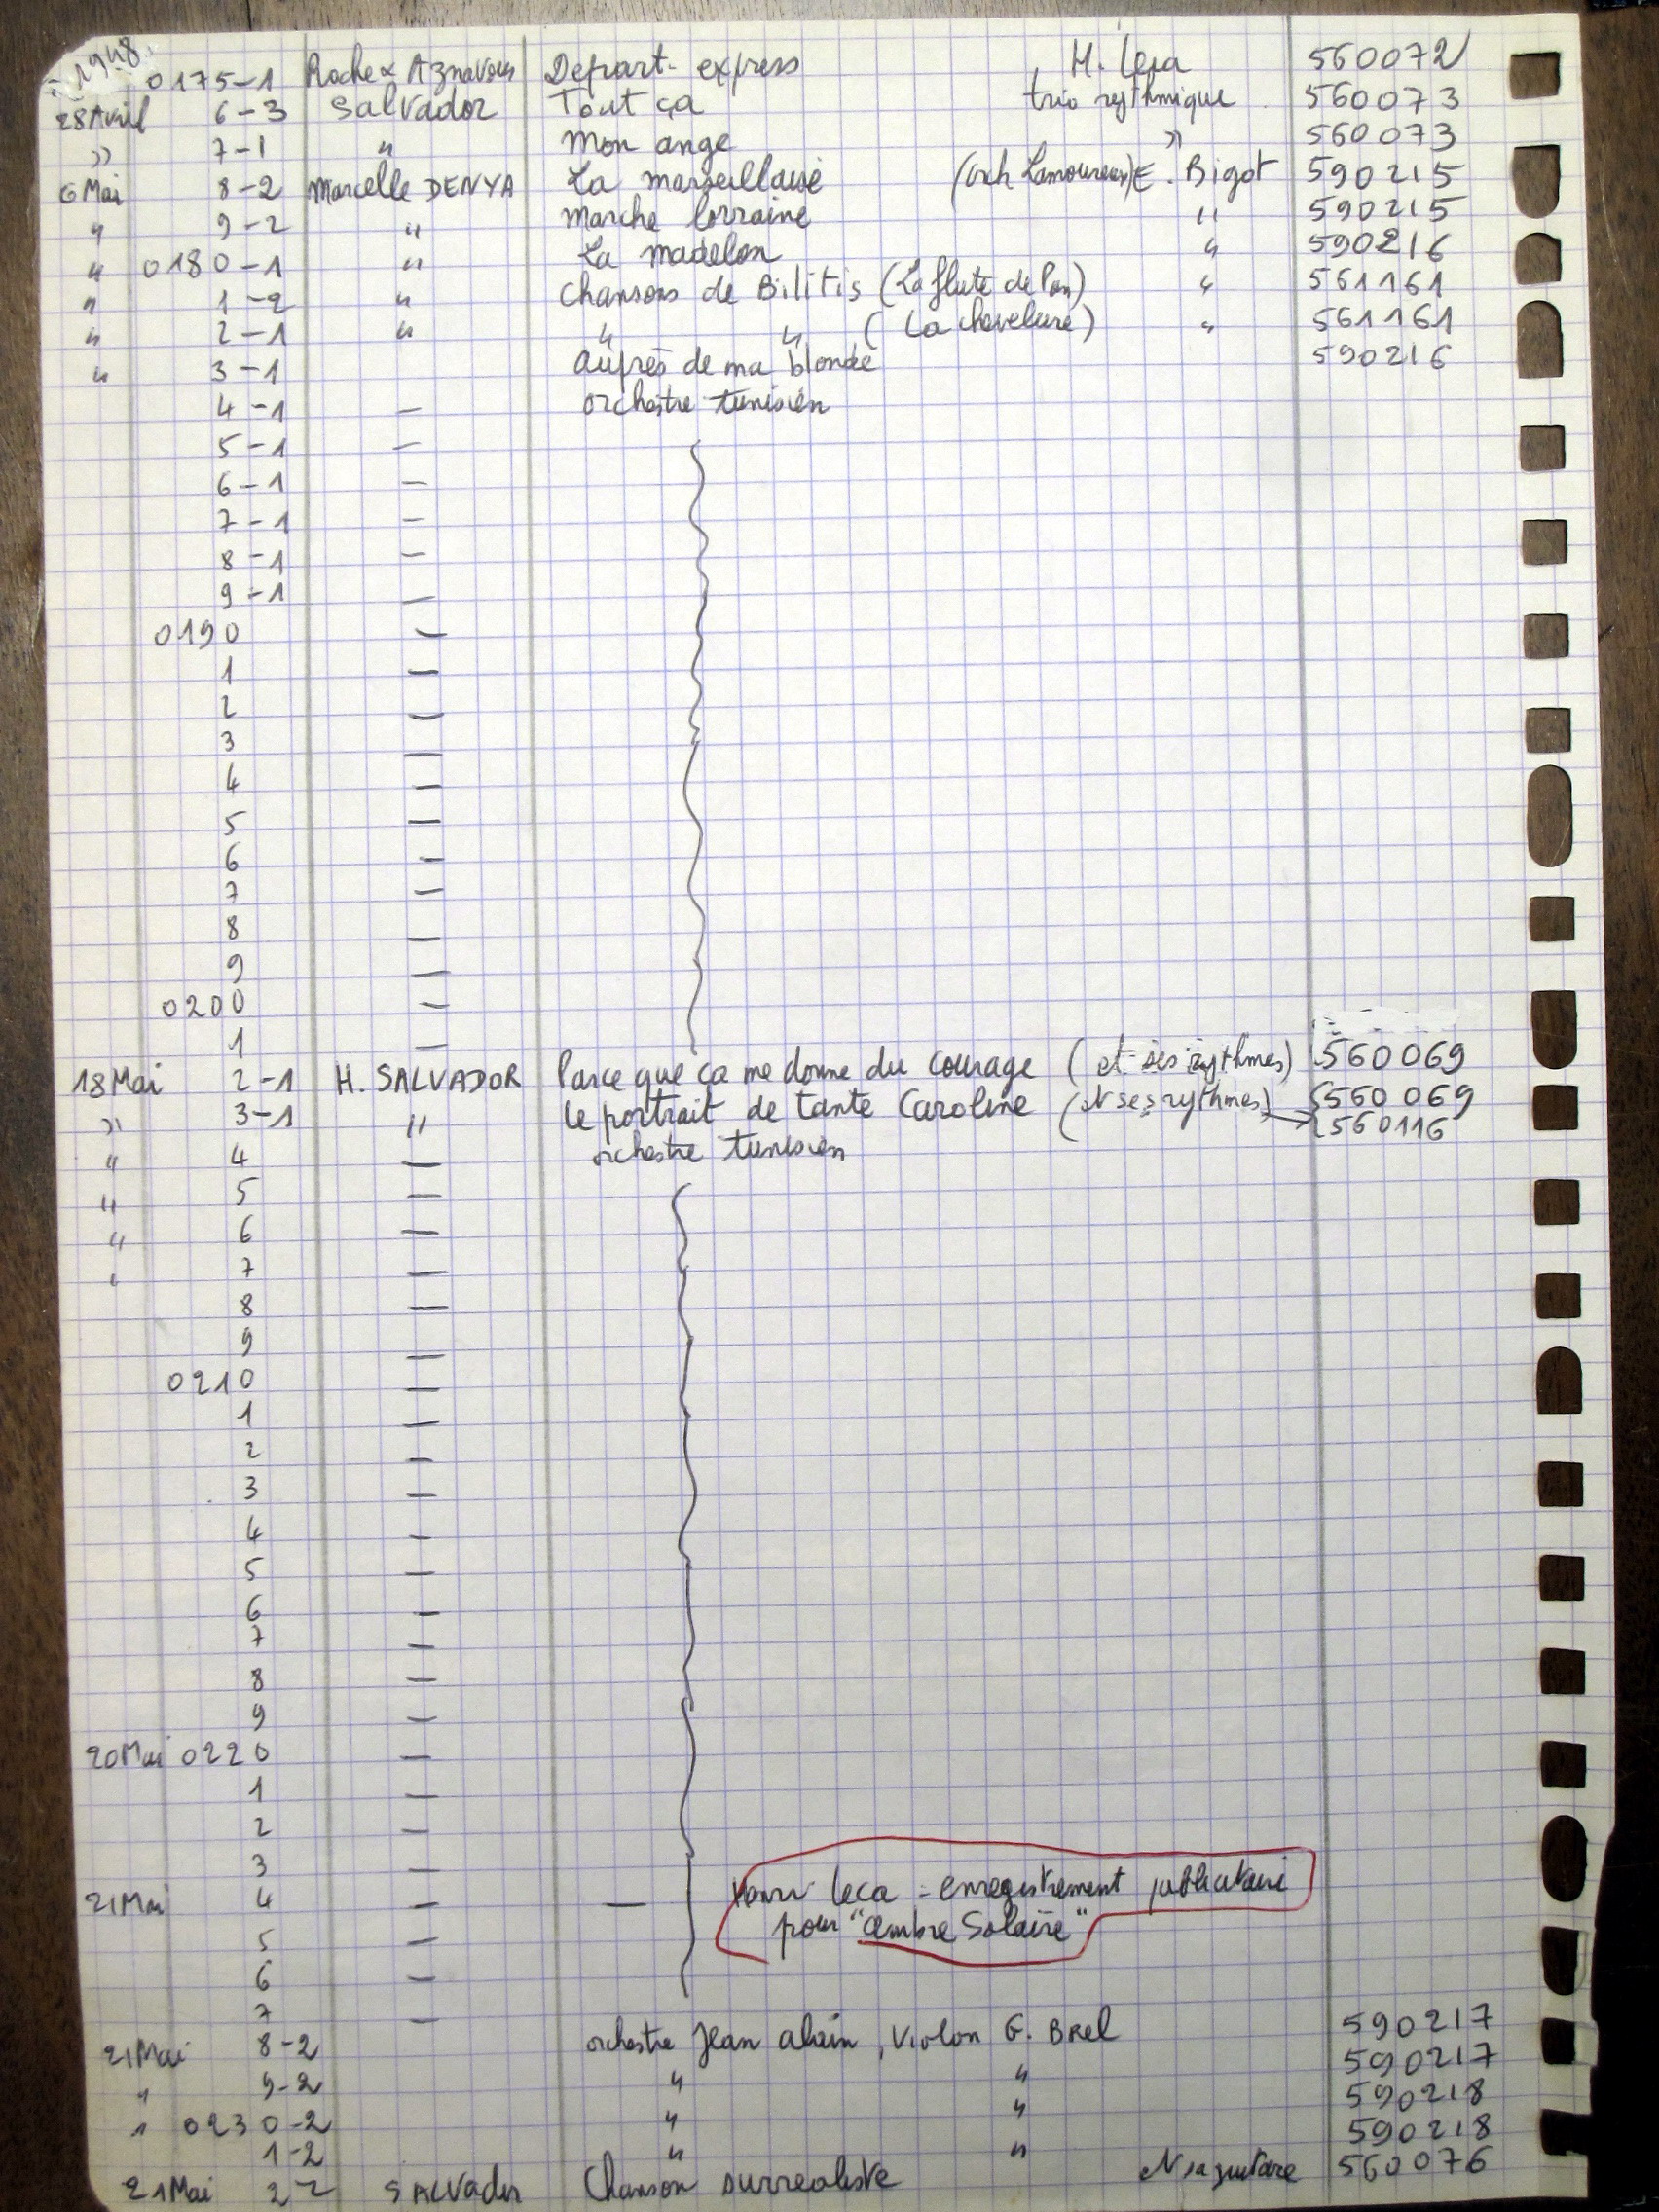 1948.
0175-1 Roche & Aznavour Depart express H. Leca 560072
28 Avril 6-3 Salvador Tout ça trio rythmique 560073
" 7-1 " Mon ange " 560073
6 Mai 8-2 Marcelle DENYA La marseillaise (orch Lamoureux) E. Bigot 590215
" 9-2 " marche lorraine " 590215
" 0180-1 " La madelon " 590216
" 1-2 " Chansons de Bilitis (La flute de Pan) " 561161
" 2-1 " " " (La chevelure) " 561161
" 3-1 auprès de ma blonde 590216
4-1 — orchestre tunisien
5-1 —
6-1 —
7-1 —
8-1 —
9-1 —
0190 —
1 —
2 —
3 —
4 —
5 —
6 —
7 —
8 —
9 —
0200 —
1 —
18 Mai 2-1 H. SALVADOR Parce que ça me donne du courage (et ses rythmes) 560069
" 3-1 " Le portrait de tante Caroline (N ses rythmes) 560069
560116
" 4 — orchestre tunisien
" 5 —
" 6 —
" 7 —
8 —
9 —
0210 —
1 —
2 —
3 —
4 —
5 —
6 —
7 —
8 —
9 —
20 Mai 0220 —
1 —
2 —
3 —
21 Mai 4 — — Henri Leca = enregistrement publicitaire
5 — pour "ambre Solaire"
6 —
7 —
21 Mai 8-2 orchestre Jean alain, Violon G. BREL 590217
" 9-2 " " 590217
" 0230-2 " " 590218
1-2 " " 590218
21 Mai 2-2 SALVADOR Chanson surrealiste N sa guitare 560076